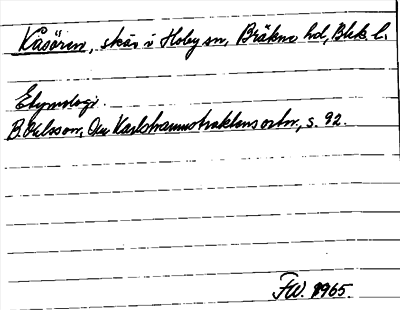 Kasören, skär i Hoby sn, Bräkne hd, Blek. l.
Etymologi.
B. Ohlsson, Om Karlshamnstraktens ortn., s. 92.
FW. 1965.